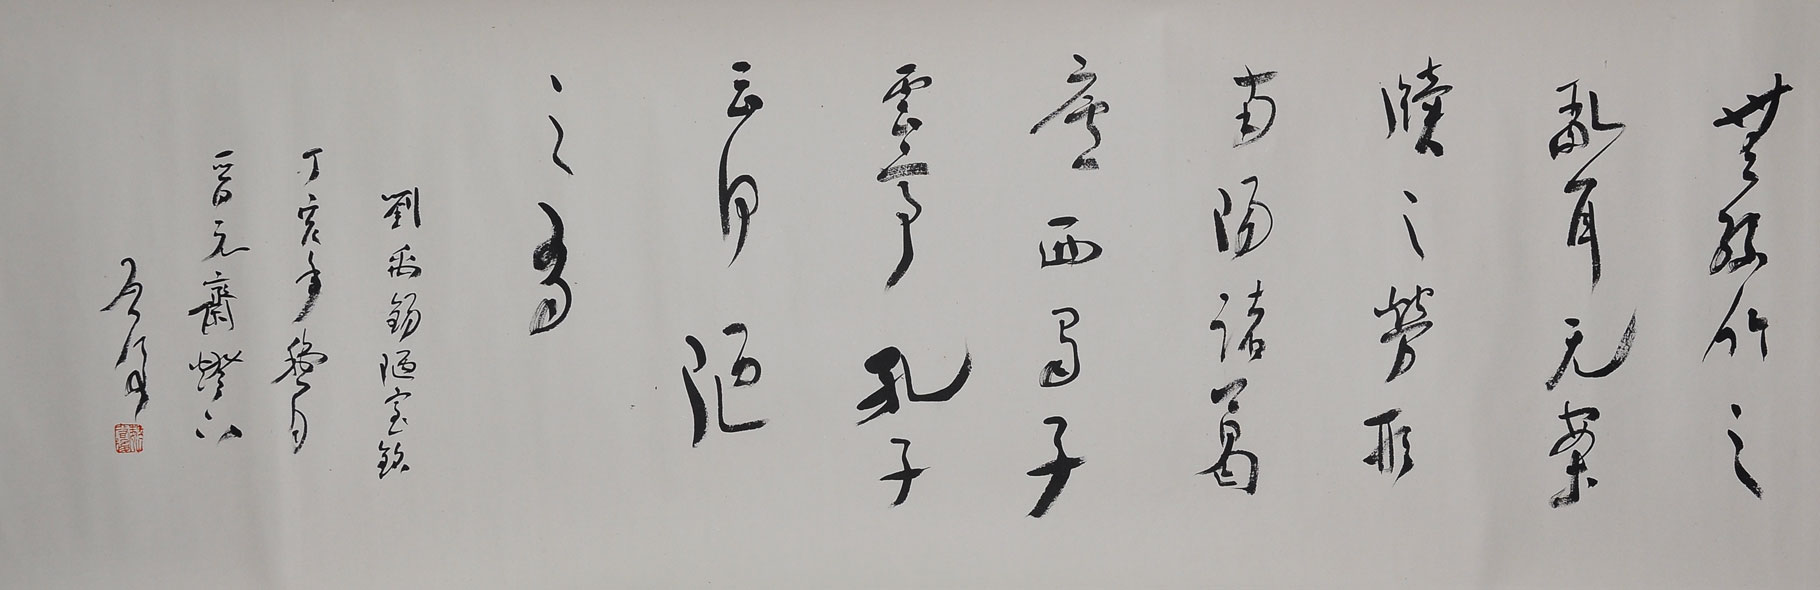 無絲竹之
亂耳无案
牘之勞形
南陽諸葛
廬西蜀子
雲亭孔子
云何陋
之有
劉禹錫陋室銘
丁亥年秋月
一百元齋燈下